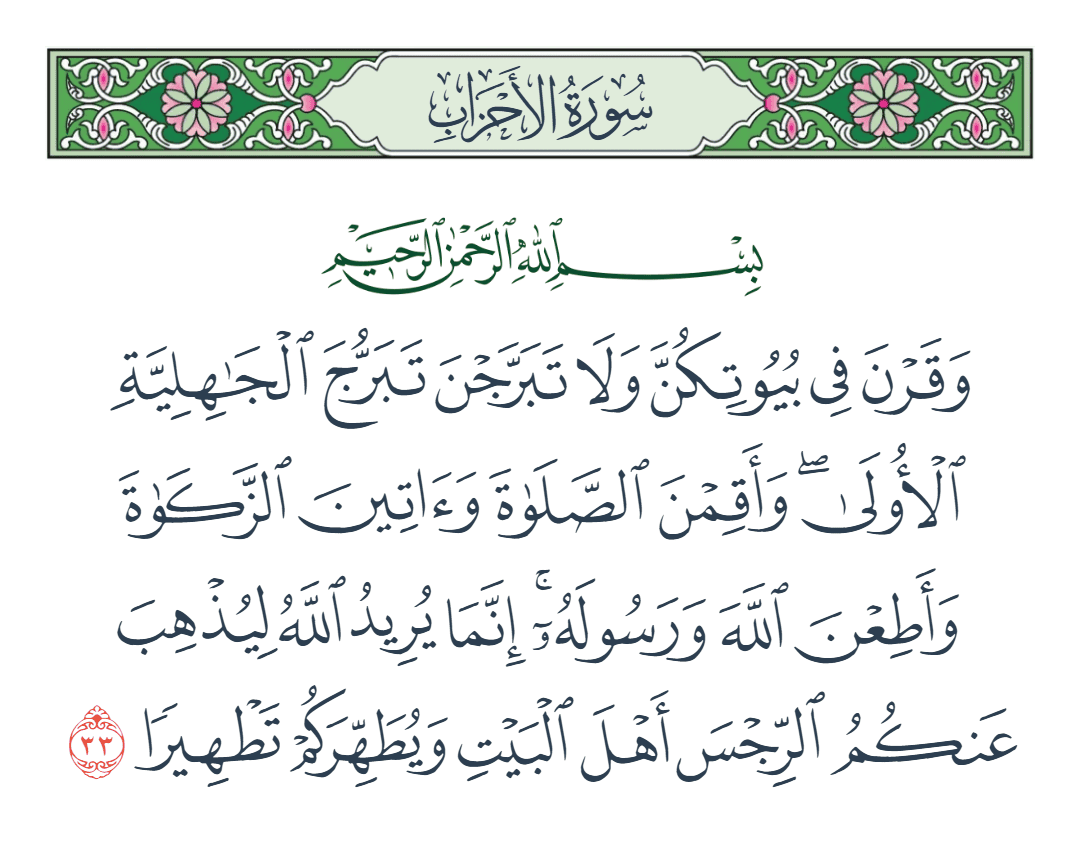 سُورَةُ الأَحْزَابِ
بِسْمِ ٱللَّهِ ٱلرَّحْمَٰنِ ٱلرَّحِيمِ
وَقَرْنَ فِى بُيُوتِكُنَّ وَلَا تَبَرَّجْنَ تَبَرُّجَ ٱلْجَـٰهِلِيَّةِ
ٱلْأُولَىٰ ۖ وَأَقِمْنَ ٱلصَّلَوٰةَ وَءَاتِينَ ٱلزَّكَوٰةَ
وَأَطِعْنَ ٱللَّهَ وَرَسُولَهُۥٓ ۚ إِنَّمَا يُرِيدُ ٱللَّهُ لِيُذْهِبَ
عَنكُمُ ٱلرِّجْسَ أَهْلَ ٱلْبَيْتِ وَيُطَهِّرَكُمْ تَطْهِيرًا ٣٣